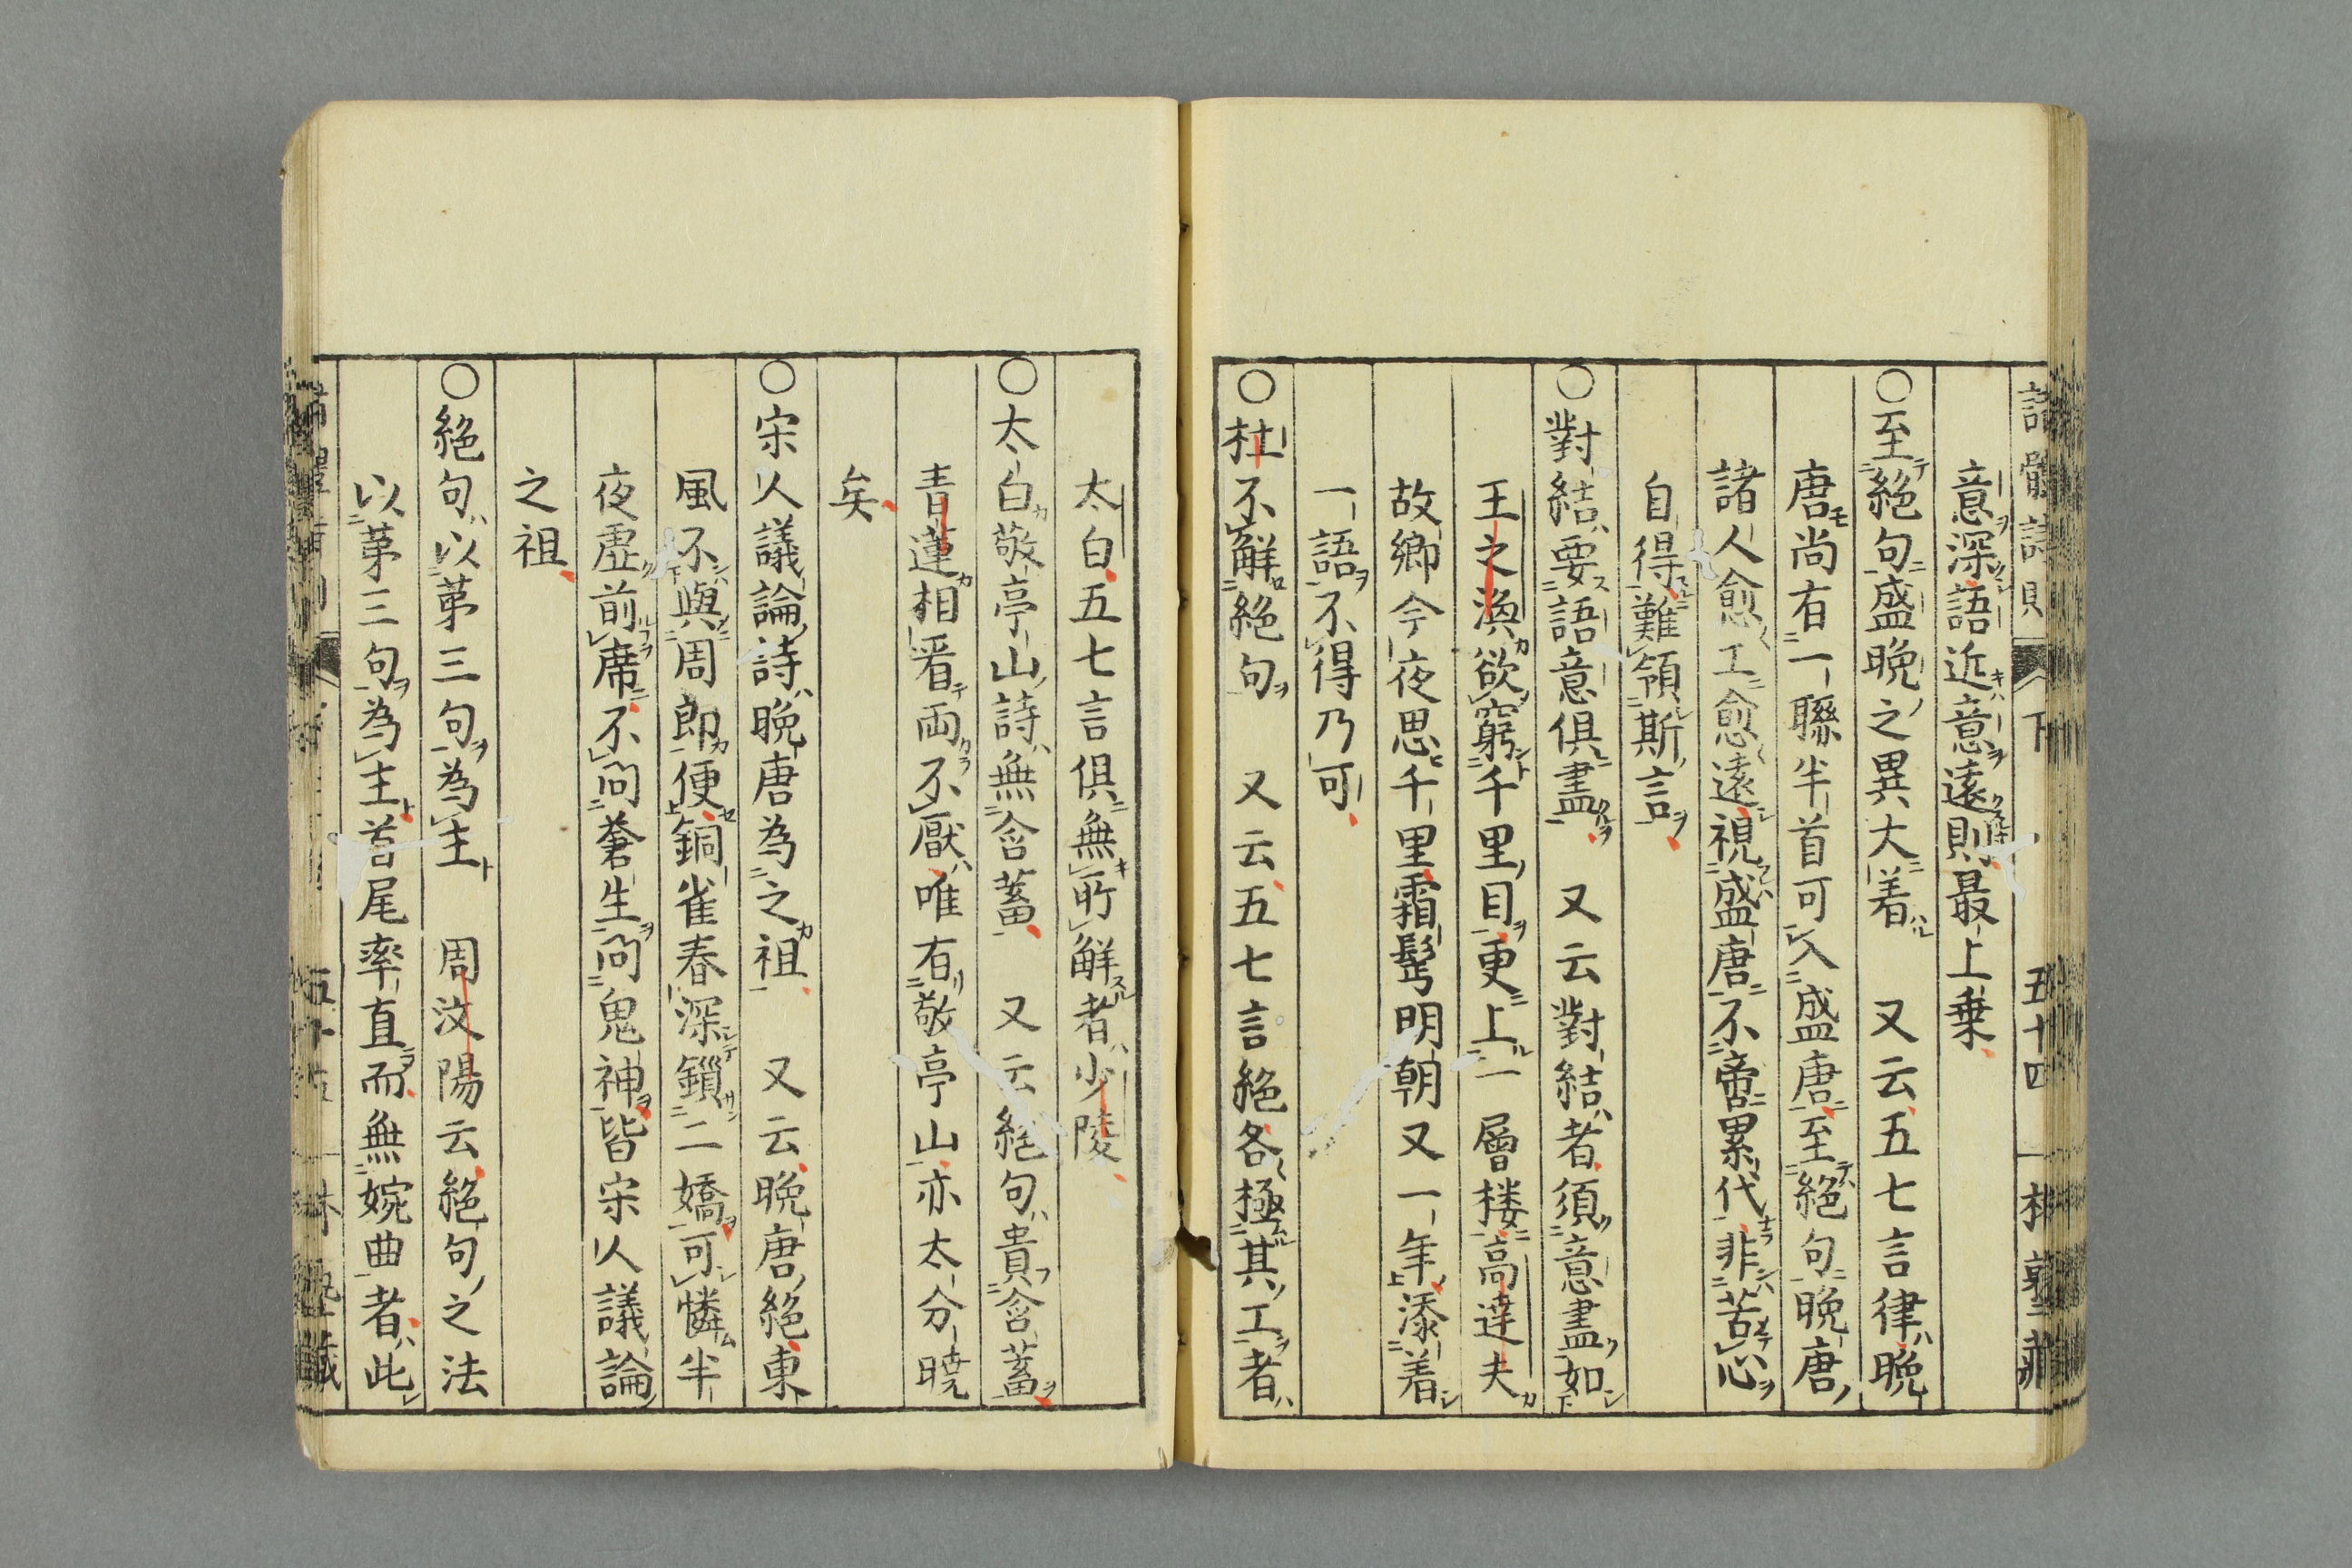 意深語近意遠則最上乗
○至絕句盛晚之異大着　又云五七言律晚
唐尚有一聯半首可入盛唐至絕句晚唐
諸人愈工愈遠視盛唐不啻累代非苦心
自得難領斯言
○對結要語意俱盡　又云對結者須意盡如
王之渙欲窮千里目更上一層楼高達夫
故鄉今夜思千里霜髩明朝又一年添着
一語不得乃可
○杜不觧絕句　又云五七言絕各極其工者
太白五七言俱無所觧者少陵
○太白敬亭山詩無含蓄　又云絕句貴含蓄
青蓮相看両不厭唯有敬亭山亦太分曉
矣
○宋人議論詩晚唐為之祖　又云晚唐絕東
風不與周郎便銅雀春深鎖二嬌可憐半
夜虛前席不問蒼生問鬼神皆宋人議論
之祖
○絕句以苐三句為主　周汶陽云絕句之法
以苐三句為主首尾率直而無婉曲者此